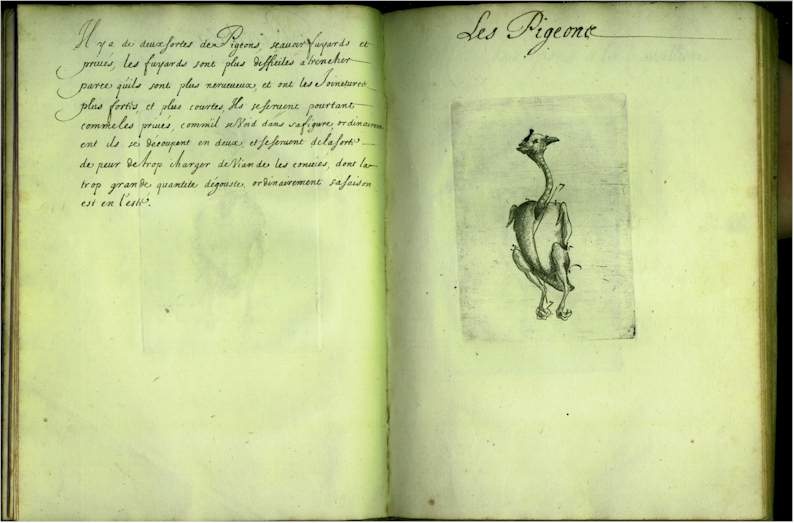 Il y a de deux sortes de Pigeons, scauoir fuyards et
priués, les fuyards sont plus difficiles a trencher
parce quils sont plus nerueueux, et ont les Joinctures
plus fortes, et plus courtes, Ils se seruent pourtant
comme les priués, comme il se Void dans sa figure, ordinairem
ent ils se decoupent en deux, et se seruent de la sorte
de peur de trop charger de Viande les conuiés, dont la
trop grande quantité dégouste, ordinairement sa saison
est en l'esté.
Les Pigeons
7